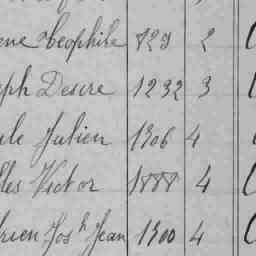 ene Theophile 729 2
eph Desire 1232 3
ule Julien 1306 4
les Victor 1888 4
rien Jos h Jean 1300 4